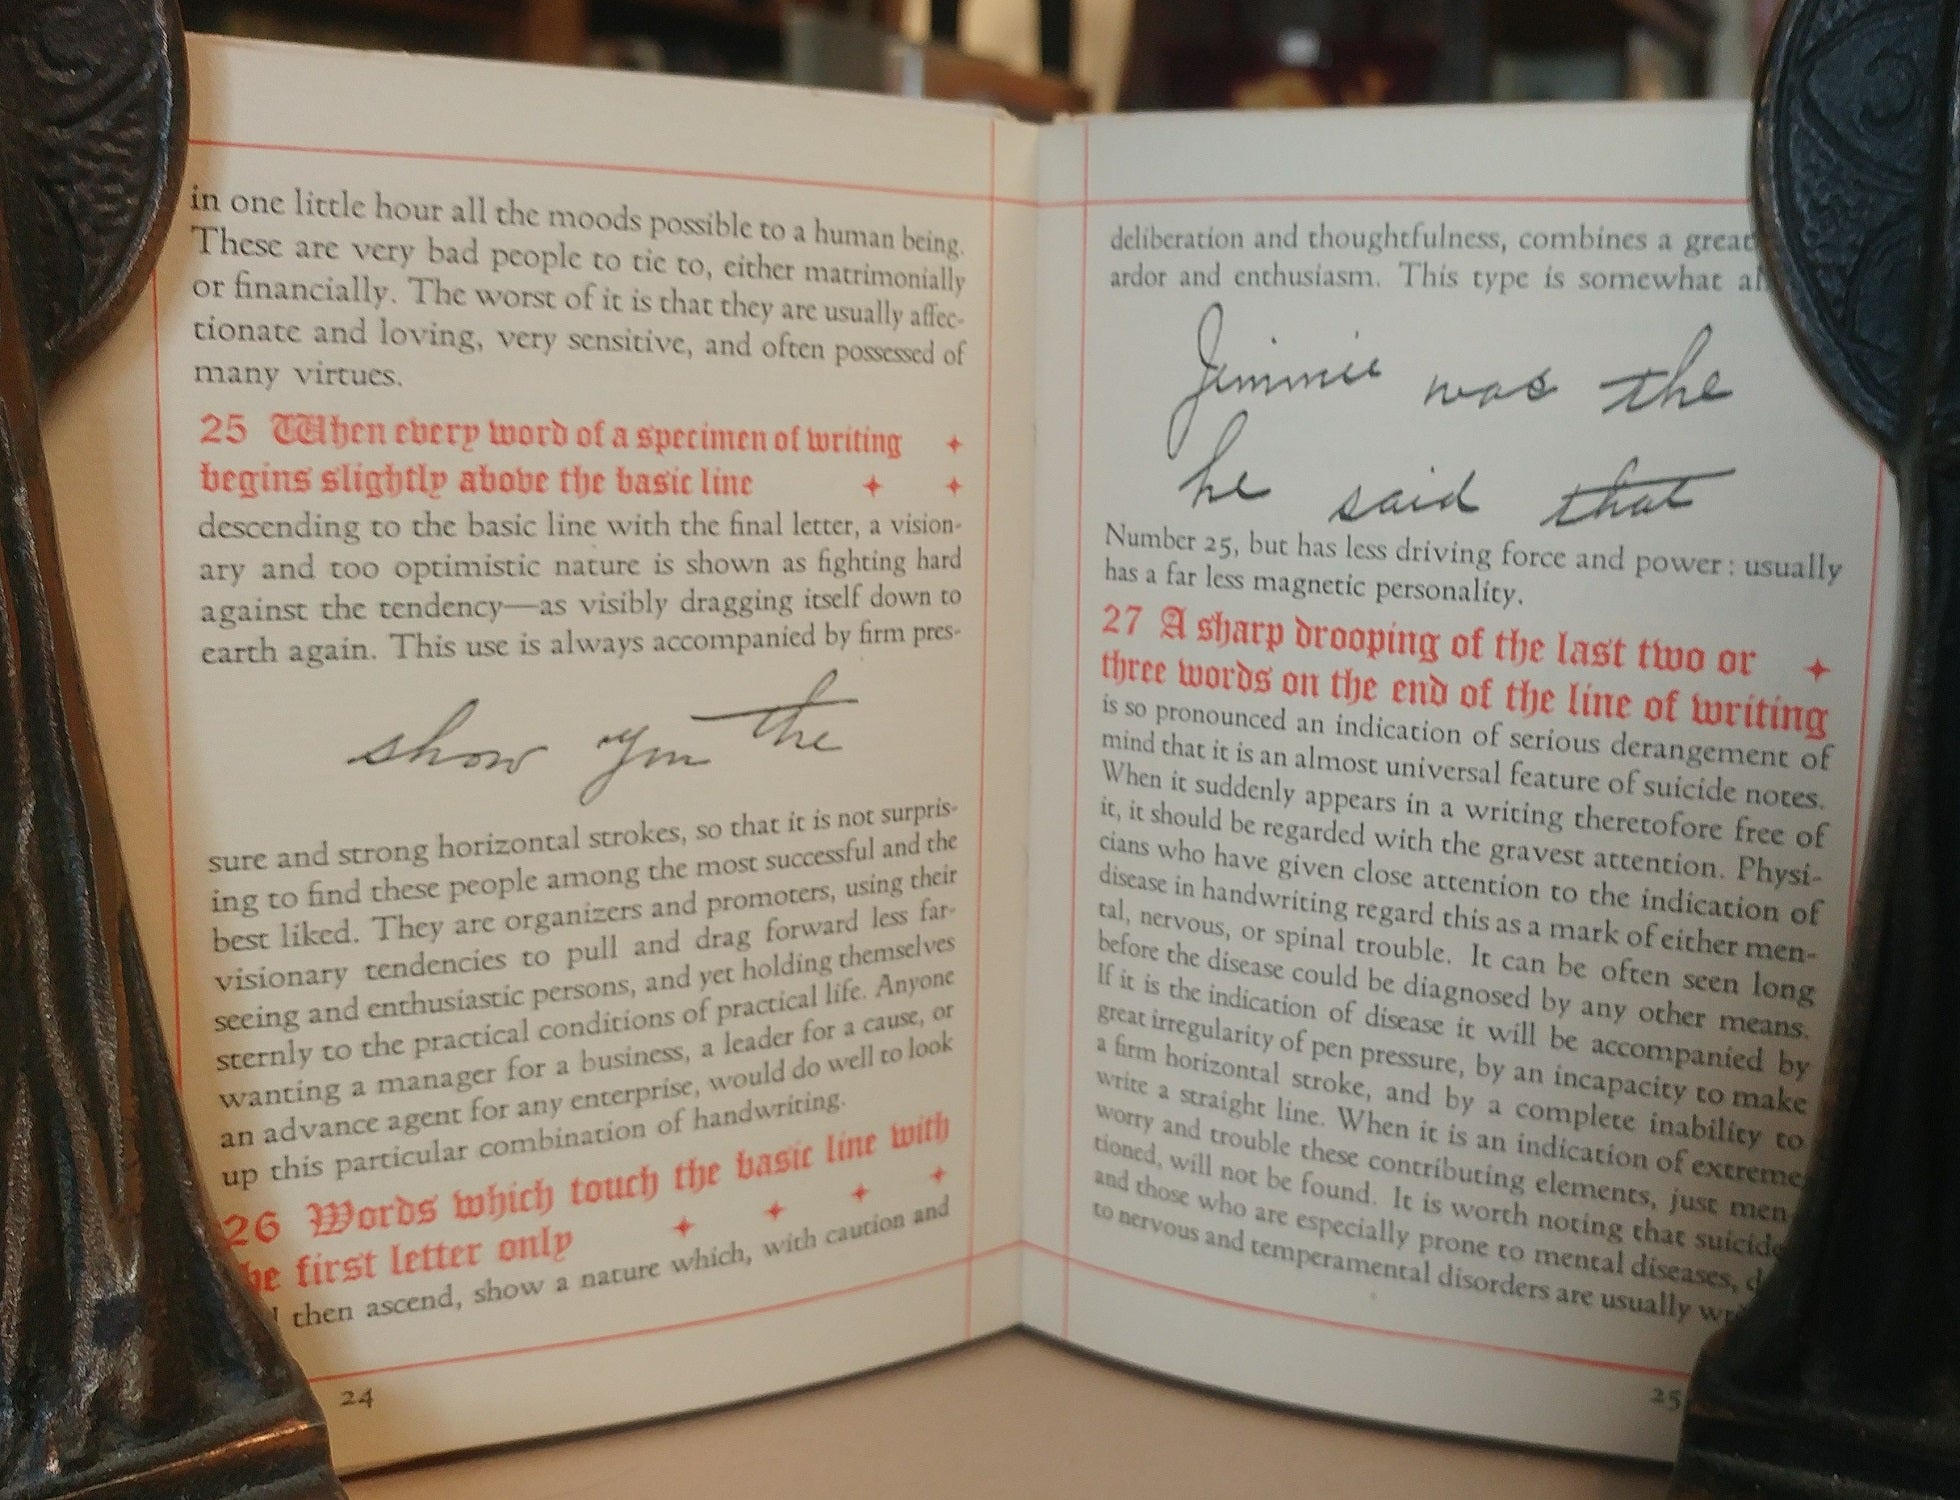 in one little hour all the moods possible to a human being.
These are very bad people to tie to, either matrimonially
or financially. The worst of it is that they are usually affec-
tionate and loving, very sensitive, and often possessed of
many virtues.
25 When every word of a specimen of writing
begins slightly above the basic line
descending to the basic line with the final letter, a vision-
ary and too optimistic nature is shown as fighting hard
against the tendency—as visibly dragging itself down to
earth again. This use is always accompanied by firm pres-
show you the
sure and strong horizontal strokes, so that it is not surpris-
ing to find these people among the most successful and the
best liked. They are organizers and promoters, using their
visionary tendencies to pull and drag forward less far-
seeing and enthusiastic persons, and yet holding themselves
sternly to the practical conditions of practical life. Anyone
wanting a manager for a business, a leader for a cause, or
an advance agent for any enterprise, would do well to look
up this particular combination of handwriting.
26 Words which touch the basic line with
he first letter only
then ascend, show a nature which, with caution and
24
deliberation and thoughtfulness, combines a great
ardor and enthusiasm. This type is somewhat
Jimmie was the
he said that
Number 25, but has less driving force and power: usually
has a far less magnetic personality.
27 A sharp drooping of the last two or
three words on the end of the line of writing
is so pronounced an indication of serious derangement of
mind that it is an almost universal feature of suicide notes.
When it suddenly appears in a writing theretofore free of
it, it should be regarded with the gravest attention. Physi-
cians who have given close attention to the indication of
disease in handwriting regard this as a mark of either men-
tal, nervous, or spinal trouble. It can be often seen long
before the disease could be diagnosed by any other means.
If it is the indication of disease it will be accompanied by
great irregularity of pen pressure, by an incapacity to make
a firm horizontal stroke, and by a complete inability to
write a straight line. When it is an indication of extreme
worry and trouble these contributing elements, just men-
tioned, will not be found. It is worth noting that suicide
and those who are especially prone to mental diseases,
to nervous and temperamental disorders are usually
25